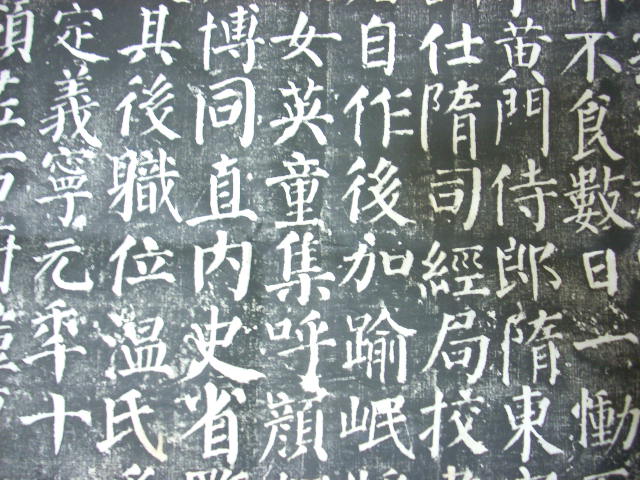 不食數日一慟
黄門侍郎隋東
仕隋司經局校
自作後加踰岷
女英童集呼顔
博同直内史省
其後職位温氏
定義寧元年十